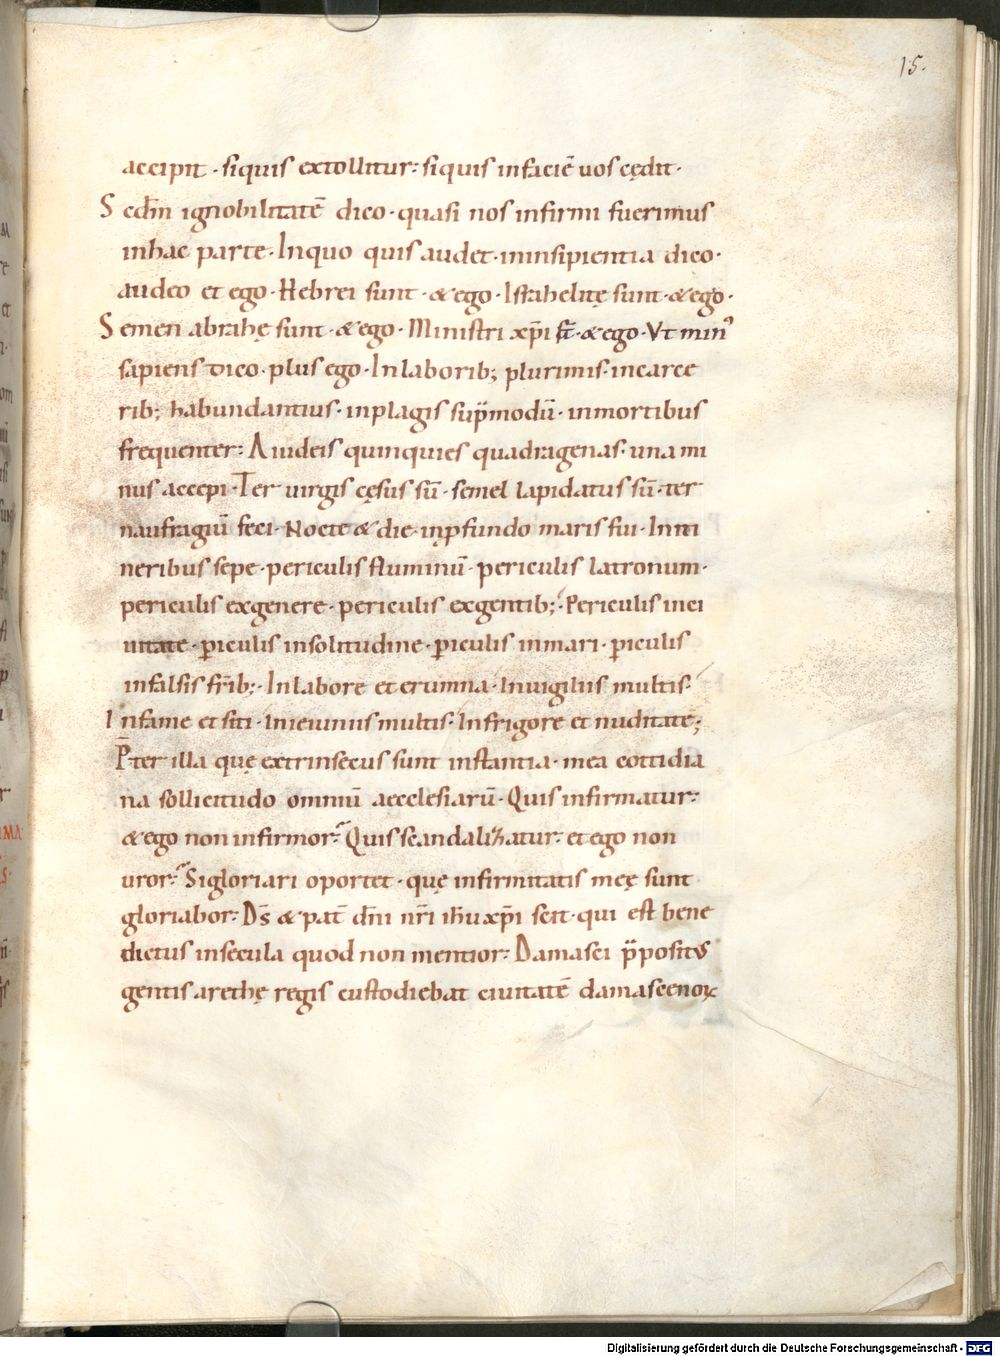 15.
accipit · siquis extollitur: siquis infaciē uos cędit ·
Scdm̄ ignobilitatē dico · quasi nos infirmi fuerimus
inhac parte · Inquo quis audet · ininsipientia dico ·
audeo et ego · Hebrei sunt · & ego · Israhelitę sunt · & ego ·
Semen abrahę sunt · & ego · Ministri xp̄i st̄ · & ego · Vt min᾽
sapiens dico · plus ego · Inlaborib; plurimis · incarce
rib; habundantius · inplagis sup̄modū · inmortibus
frequenter: A iudeis quinquies quadragenas · una mi
nus accepi · Ter uirgis cęsus sū · semel lapidatus sū · ter
naufragiū feci · Nocte & die · inꝓfundo maris fui · Initi
neribus sepe · periculis fluminū · periculis latronum ·
periculis exgenere · periculis exgentib; · Periculis inci
uitate · ꝑiculis insolitudine · ꝑiculis inmari · ꝑiculis
infalsis fr̄ib; · Inlabore et erumna · Inuigiliis multis ·
Infame et siti · Inieiuniis multis · Infrigore et nuditate;
P̄ter illa quę extrinsecus sunt instantia · mea cottidia
na sollicitudo omniū aecclesiarū · Quis infirmatur:
& ego non infirmor: Quis scandalizatur: et ego non
uror: Sigloriari oportet · quę infirmitatis meę sunt
gloriabor: Ds̄ & pat̄ dn̄i nr̄i ih̄u xp̄i scit · qui est bene
dictus insecula quod non mentior: Damasci p̄positus
gentis arethę regis custodiebat ciuitatē damascenoꝝ
Digitalisierung gefördert durch die Deutsche Forschungsgemeinschaft - DFG